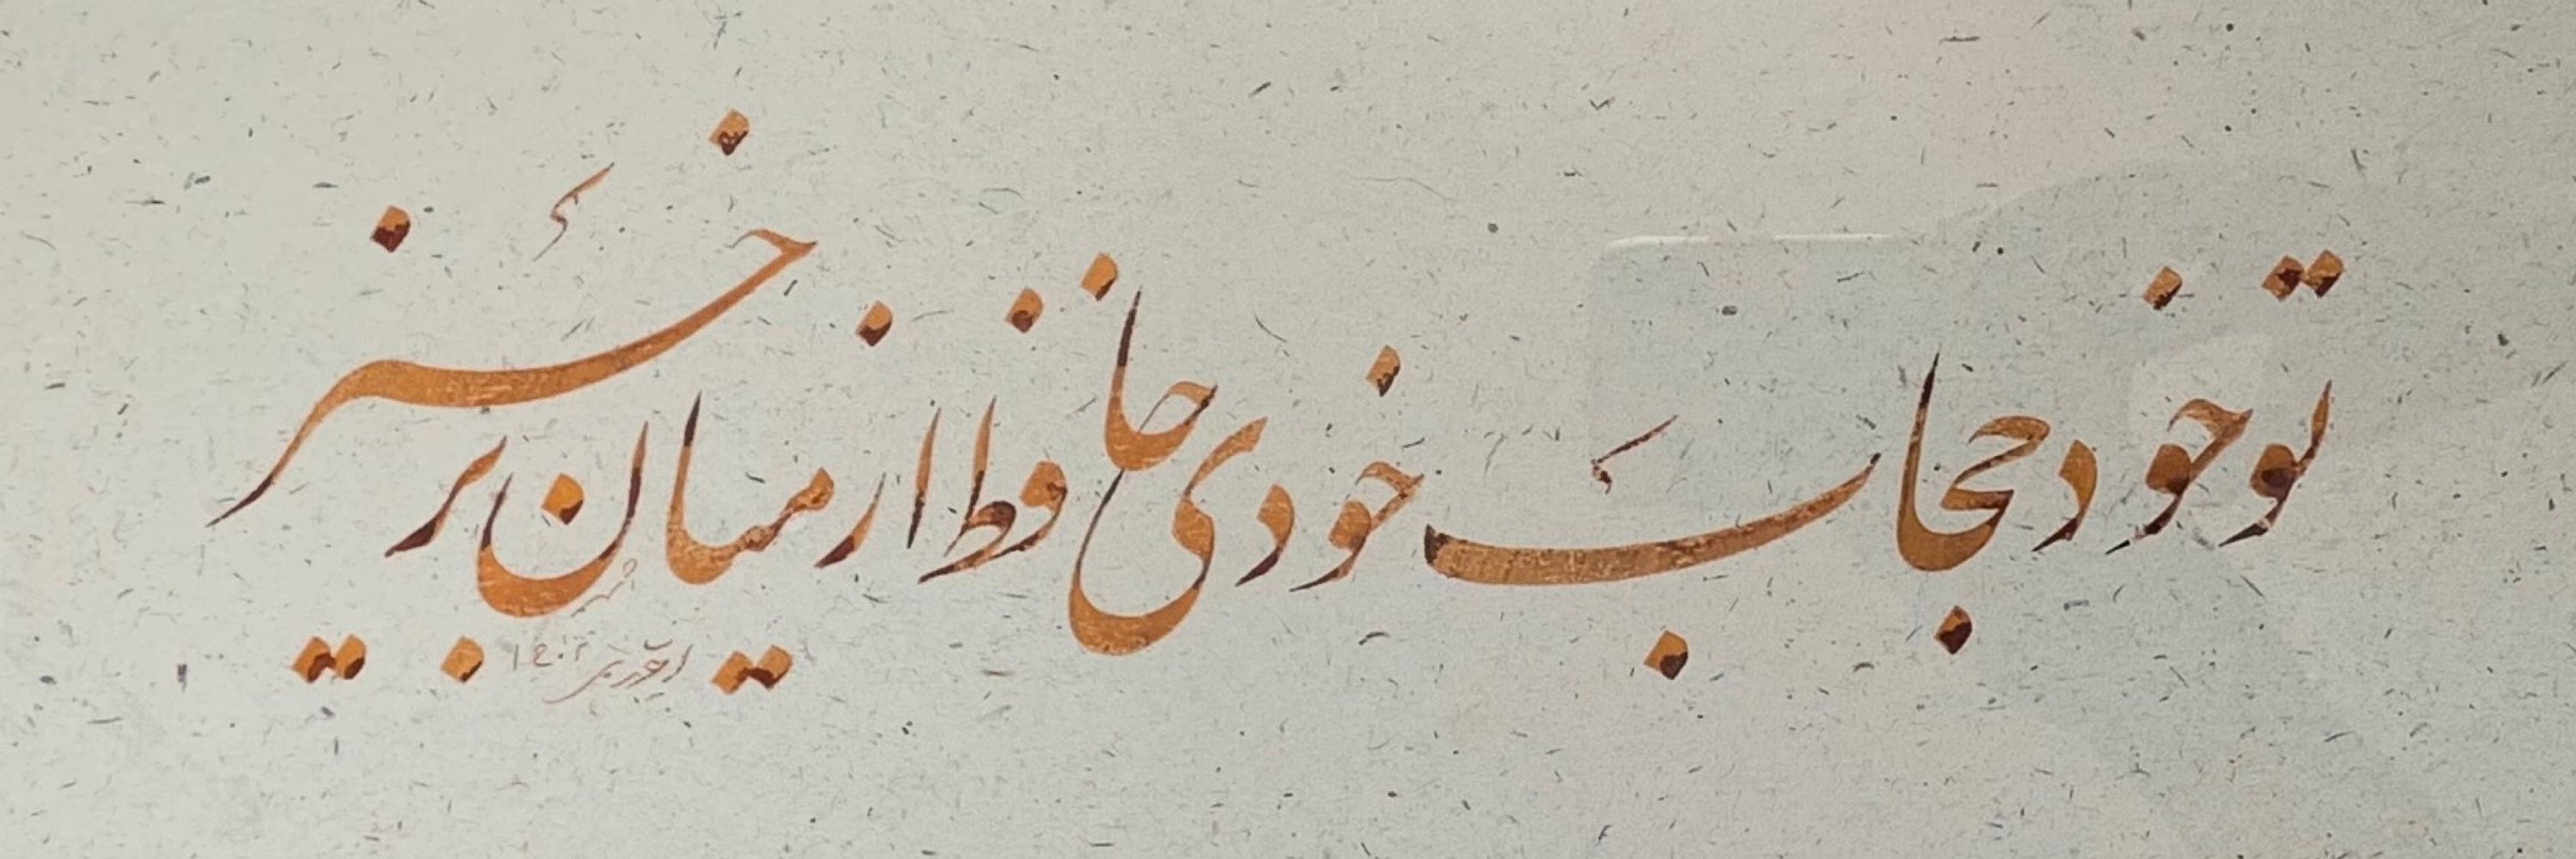 تو خود حجاب خودی حافظ از میان برخیز
۱۴۰۲